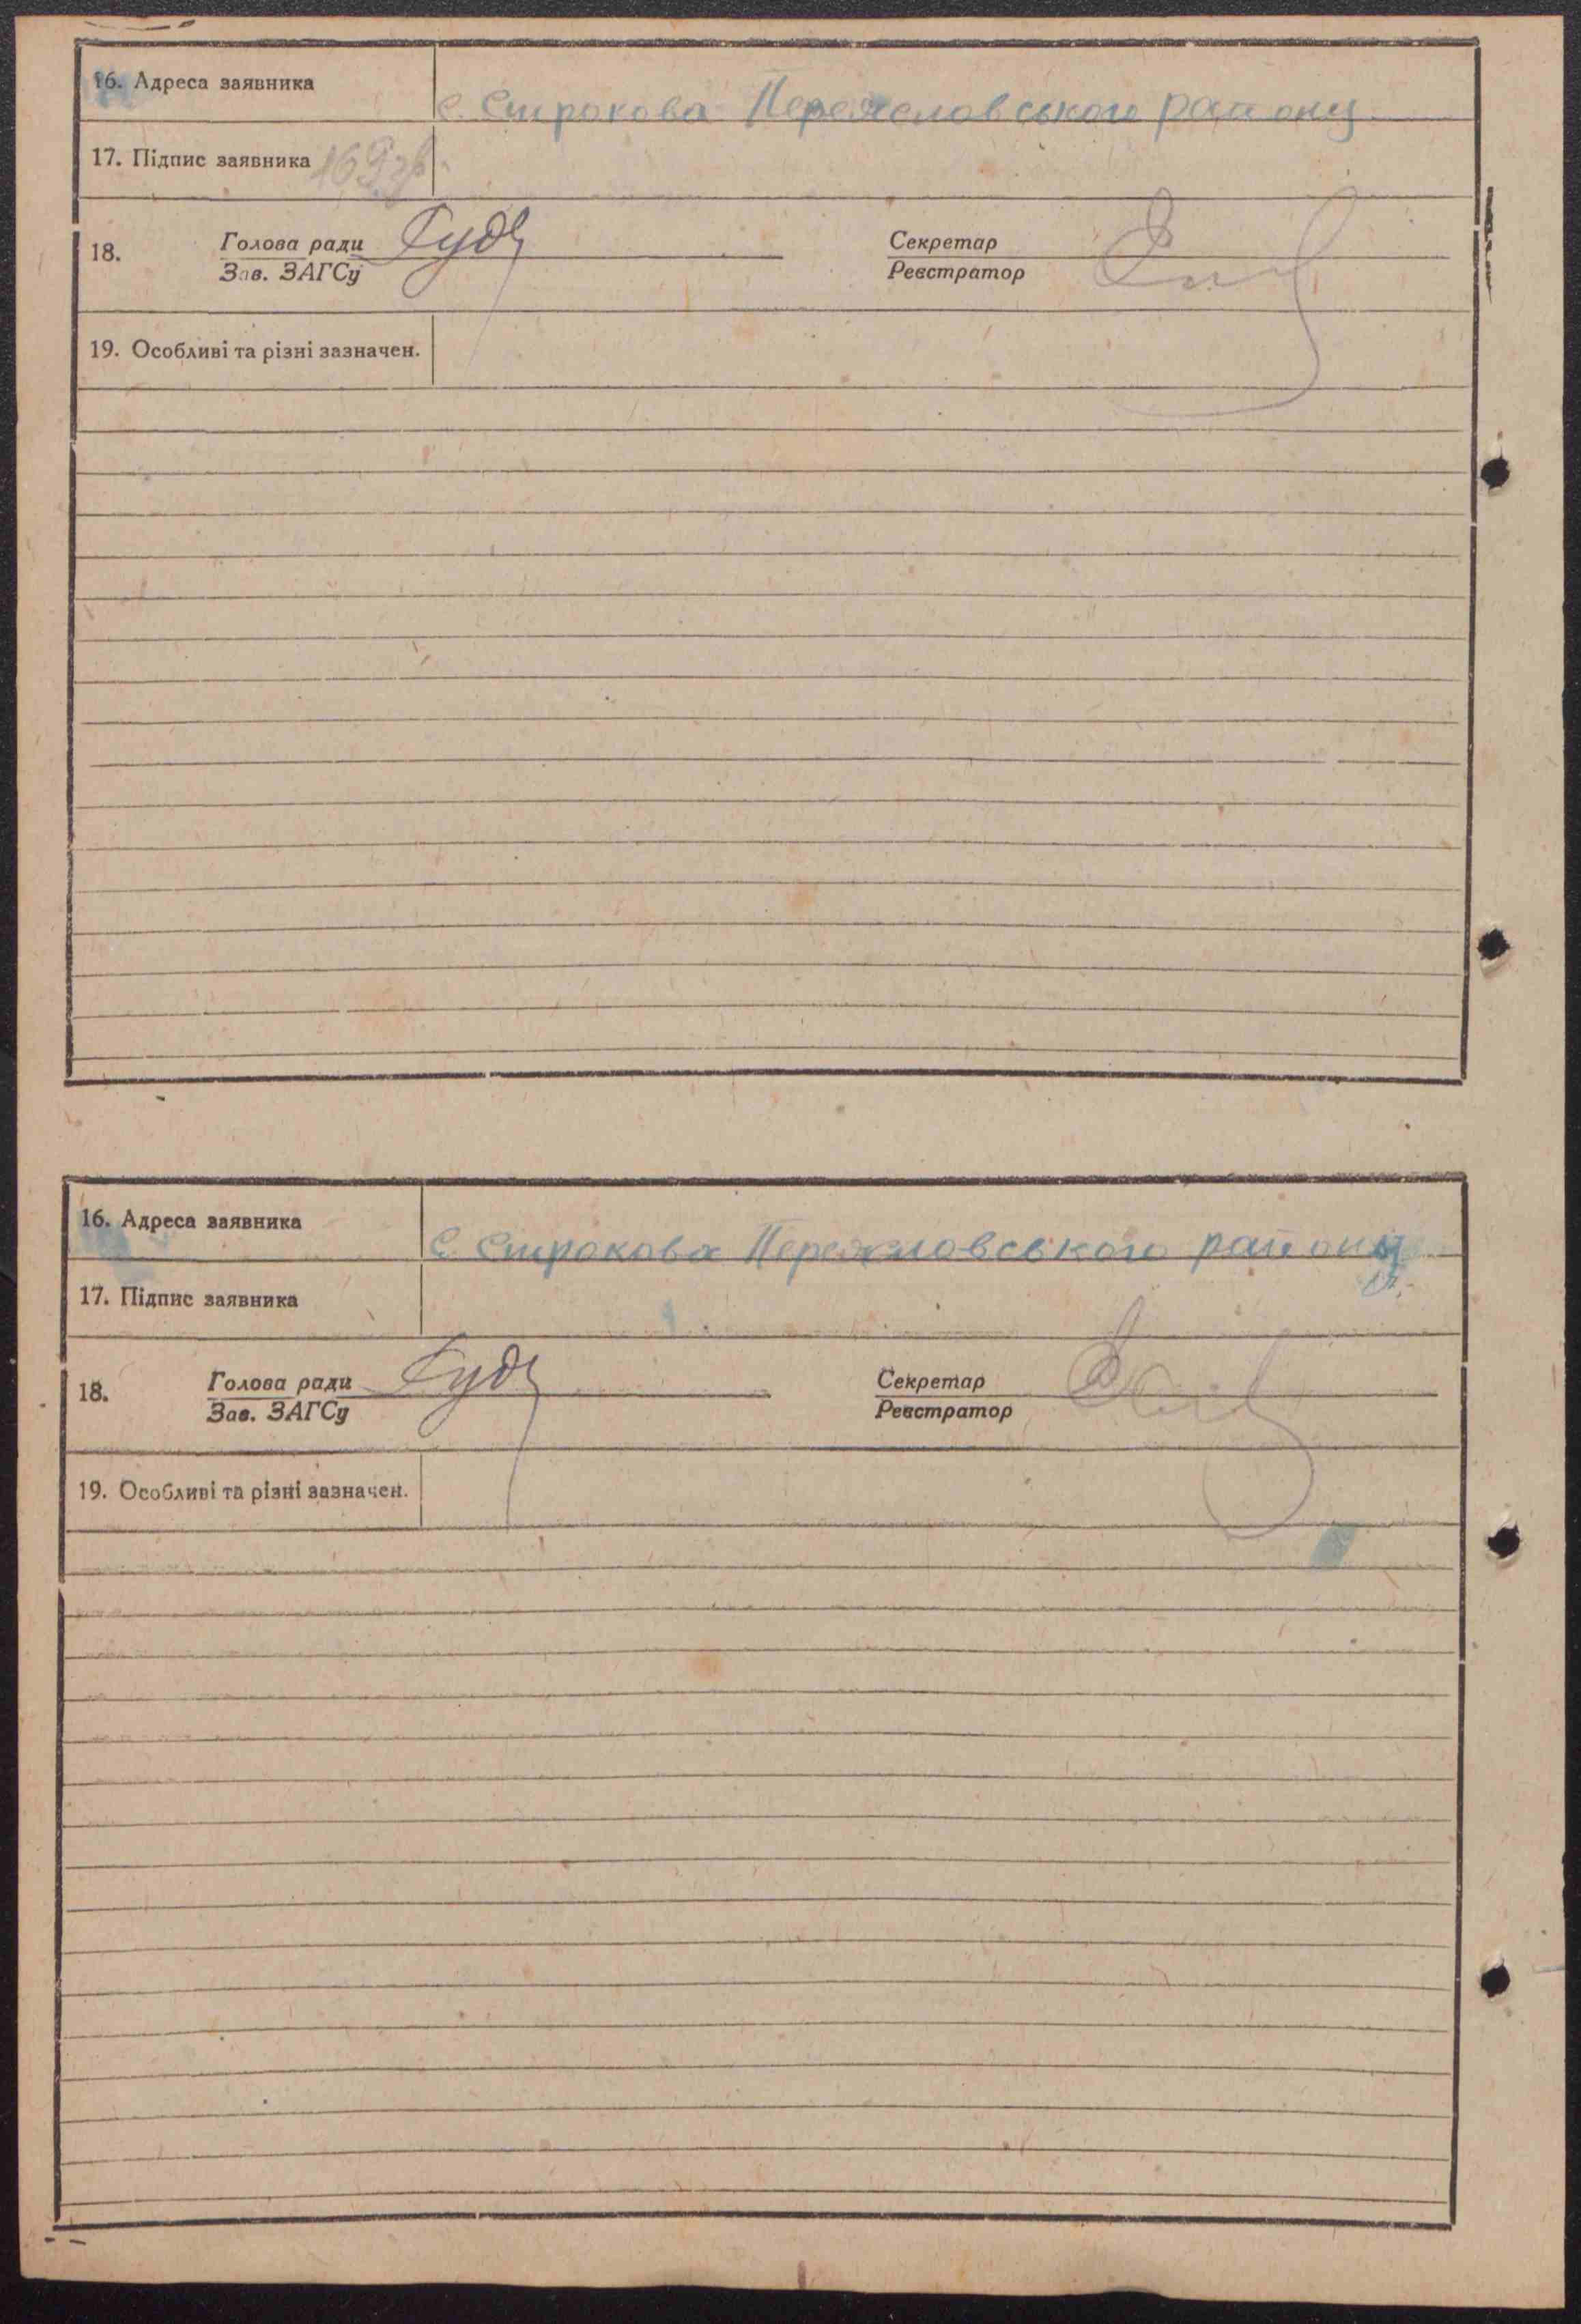 16. Адреса заявника с. Строкова Переяславського району
17. Підпис заявника
18. Голова ради Секретар
Зав. ЗАГСу Реєстратор
19. Особливі та різні зазначен.
16. Адреса заявника с. Строкова Переяславського району
17. Підпис заявника
18. Голова ради Секретар
Зав. ЗАГСу Реєстратор
19. Особливі та різні зазначен.